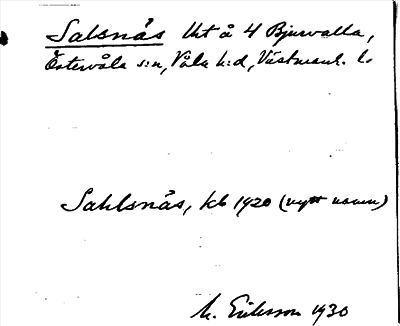 Salsnäs lht å 4 Bjurvalla,
Östervåla s:n, Våla h:d, Västmanl. l.
Sahlsnäs, kb 1920 (nytt namn)
M. Eriksson 1930